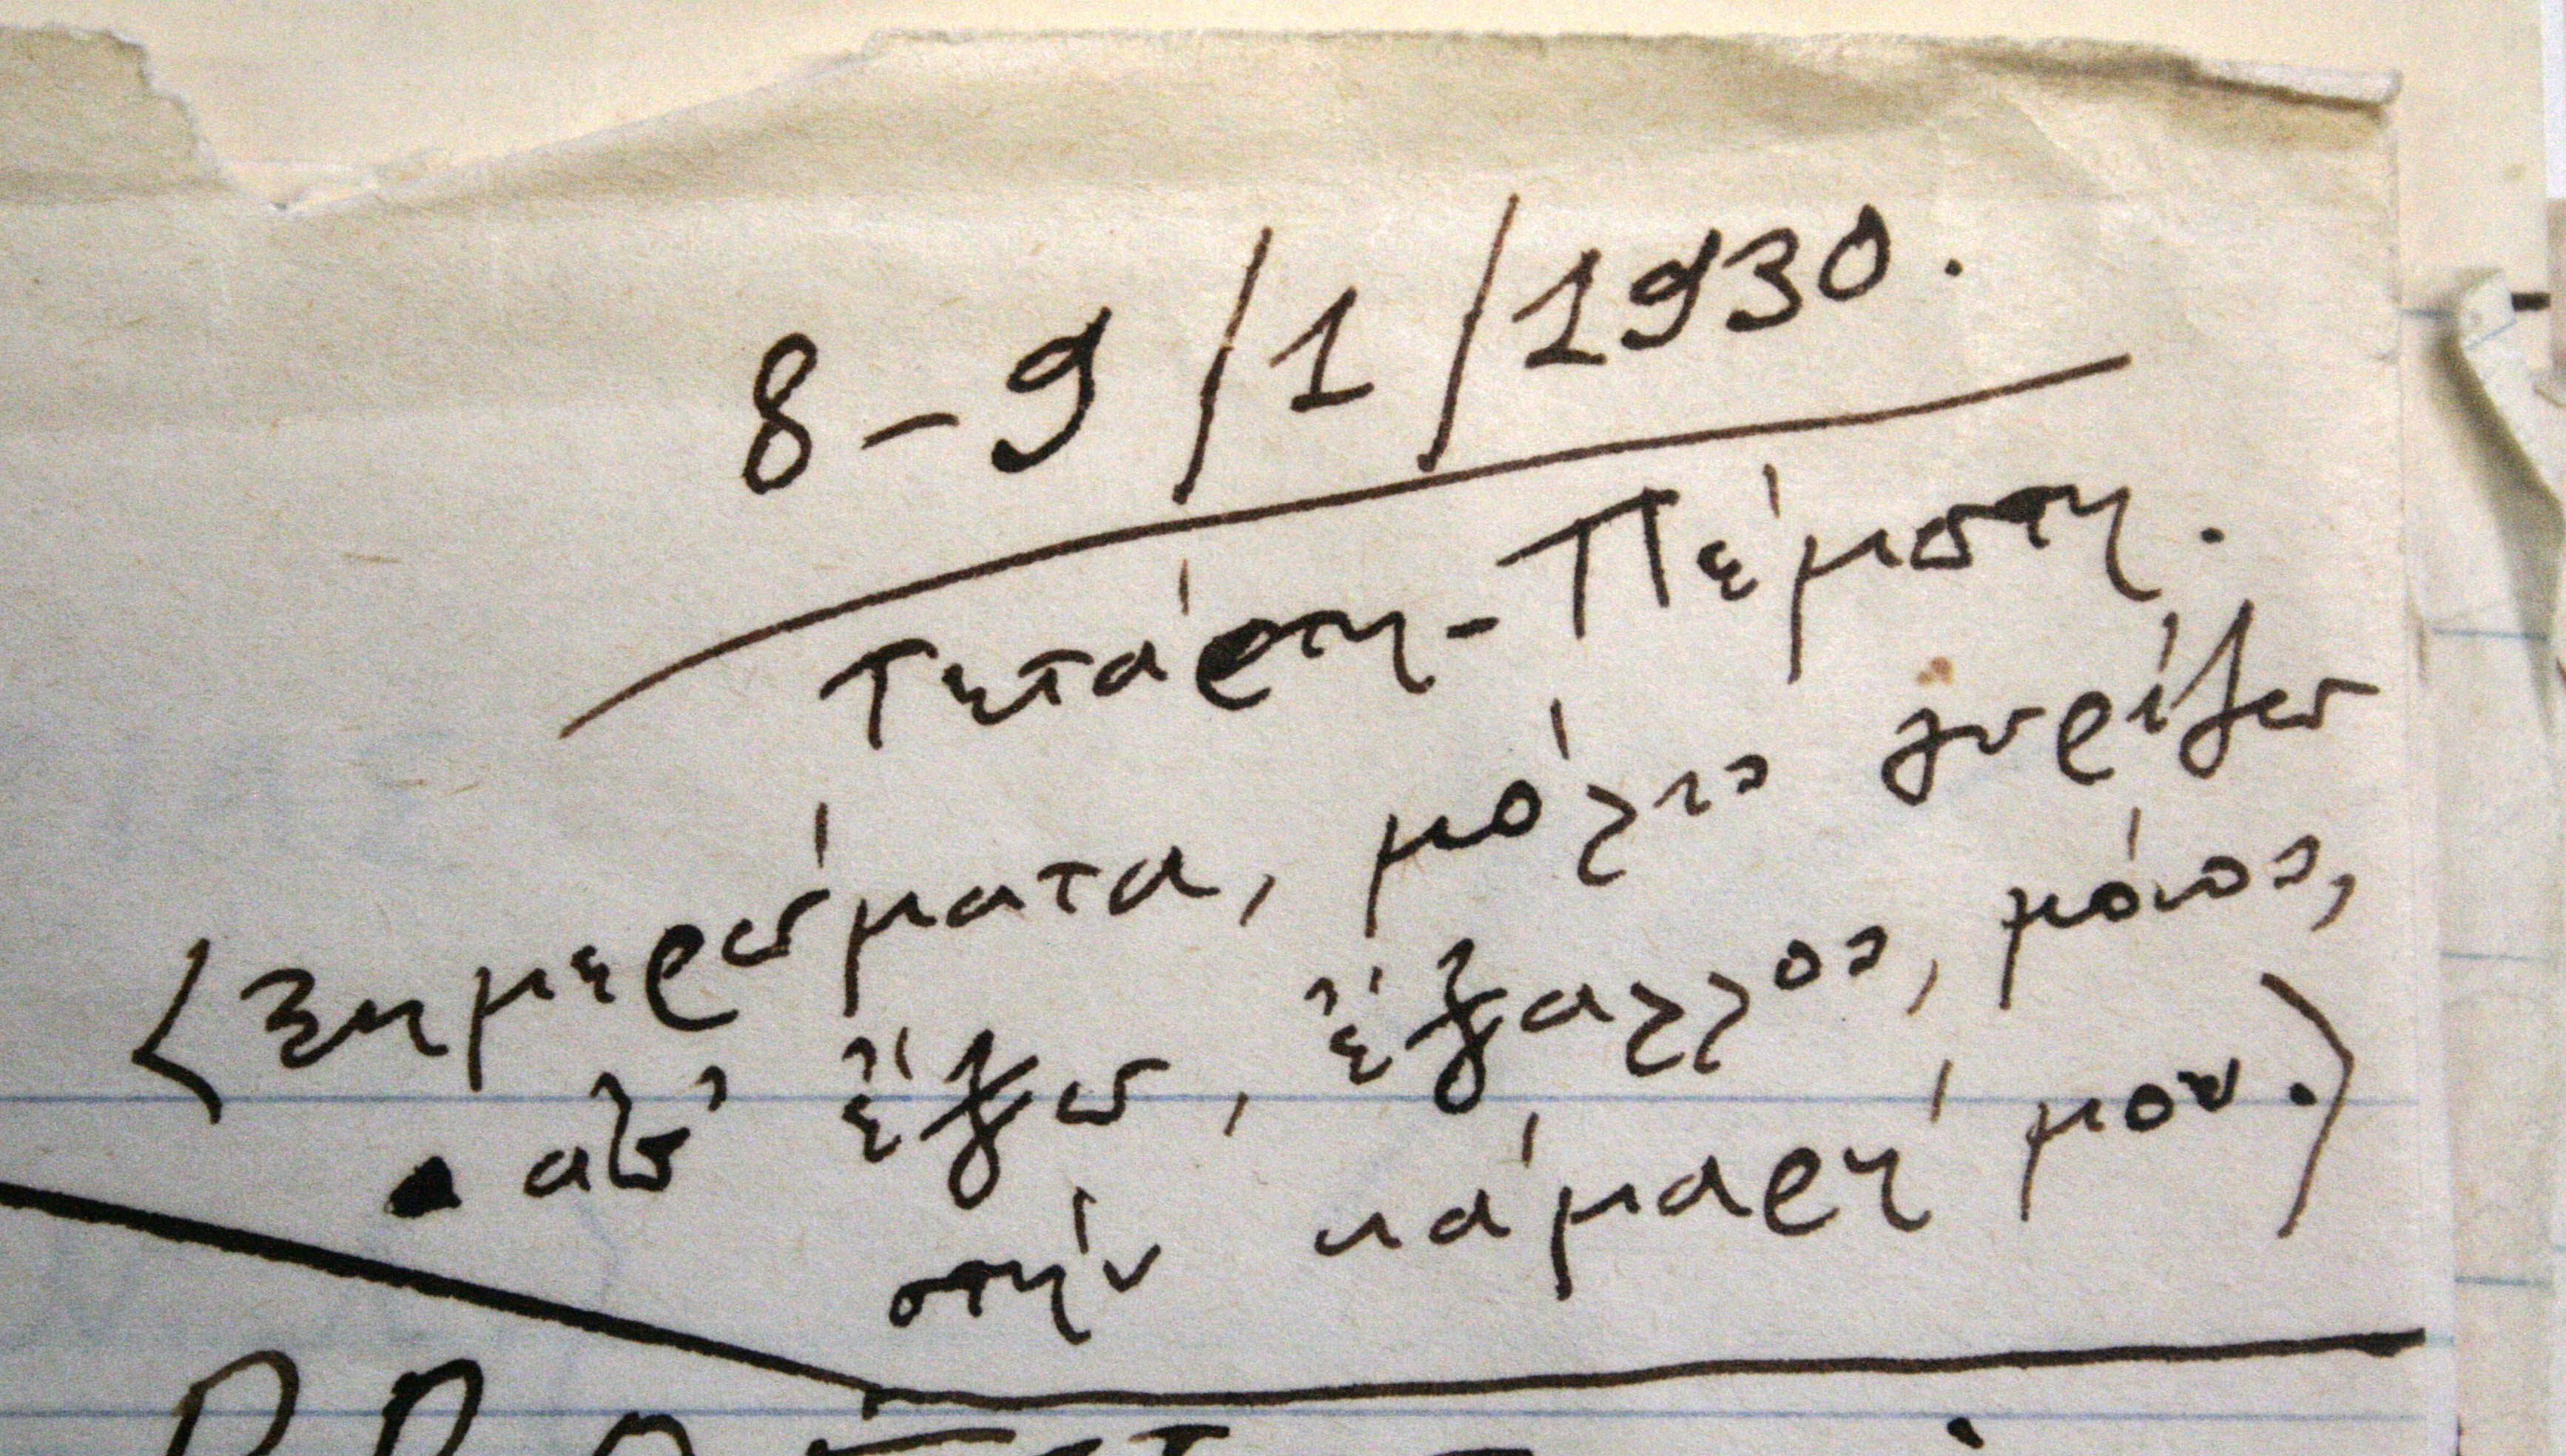 8-9/1/1930.
Τετάρτη-Πέμπτη.
(Ξημερώματα, μόλις γυρίζω
απ' ἔξω, ἔξαλλος, μόνος,
στήν κάμαρή μου.)